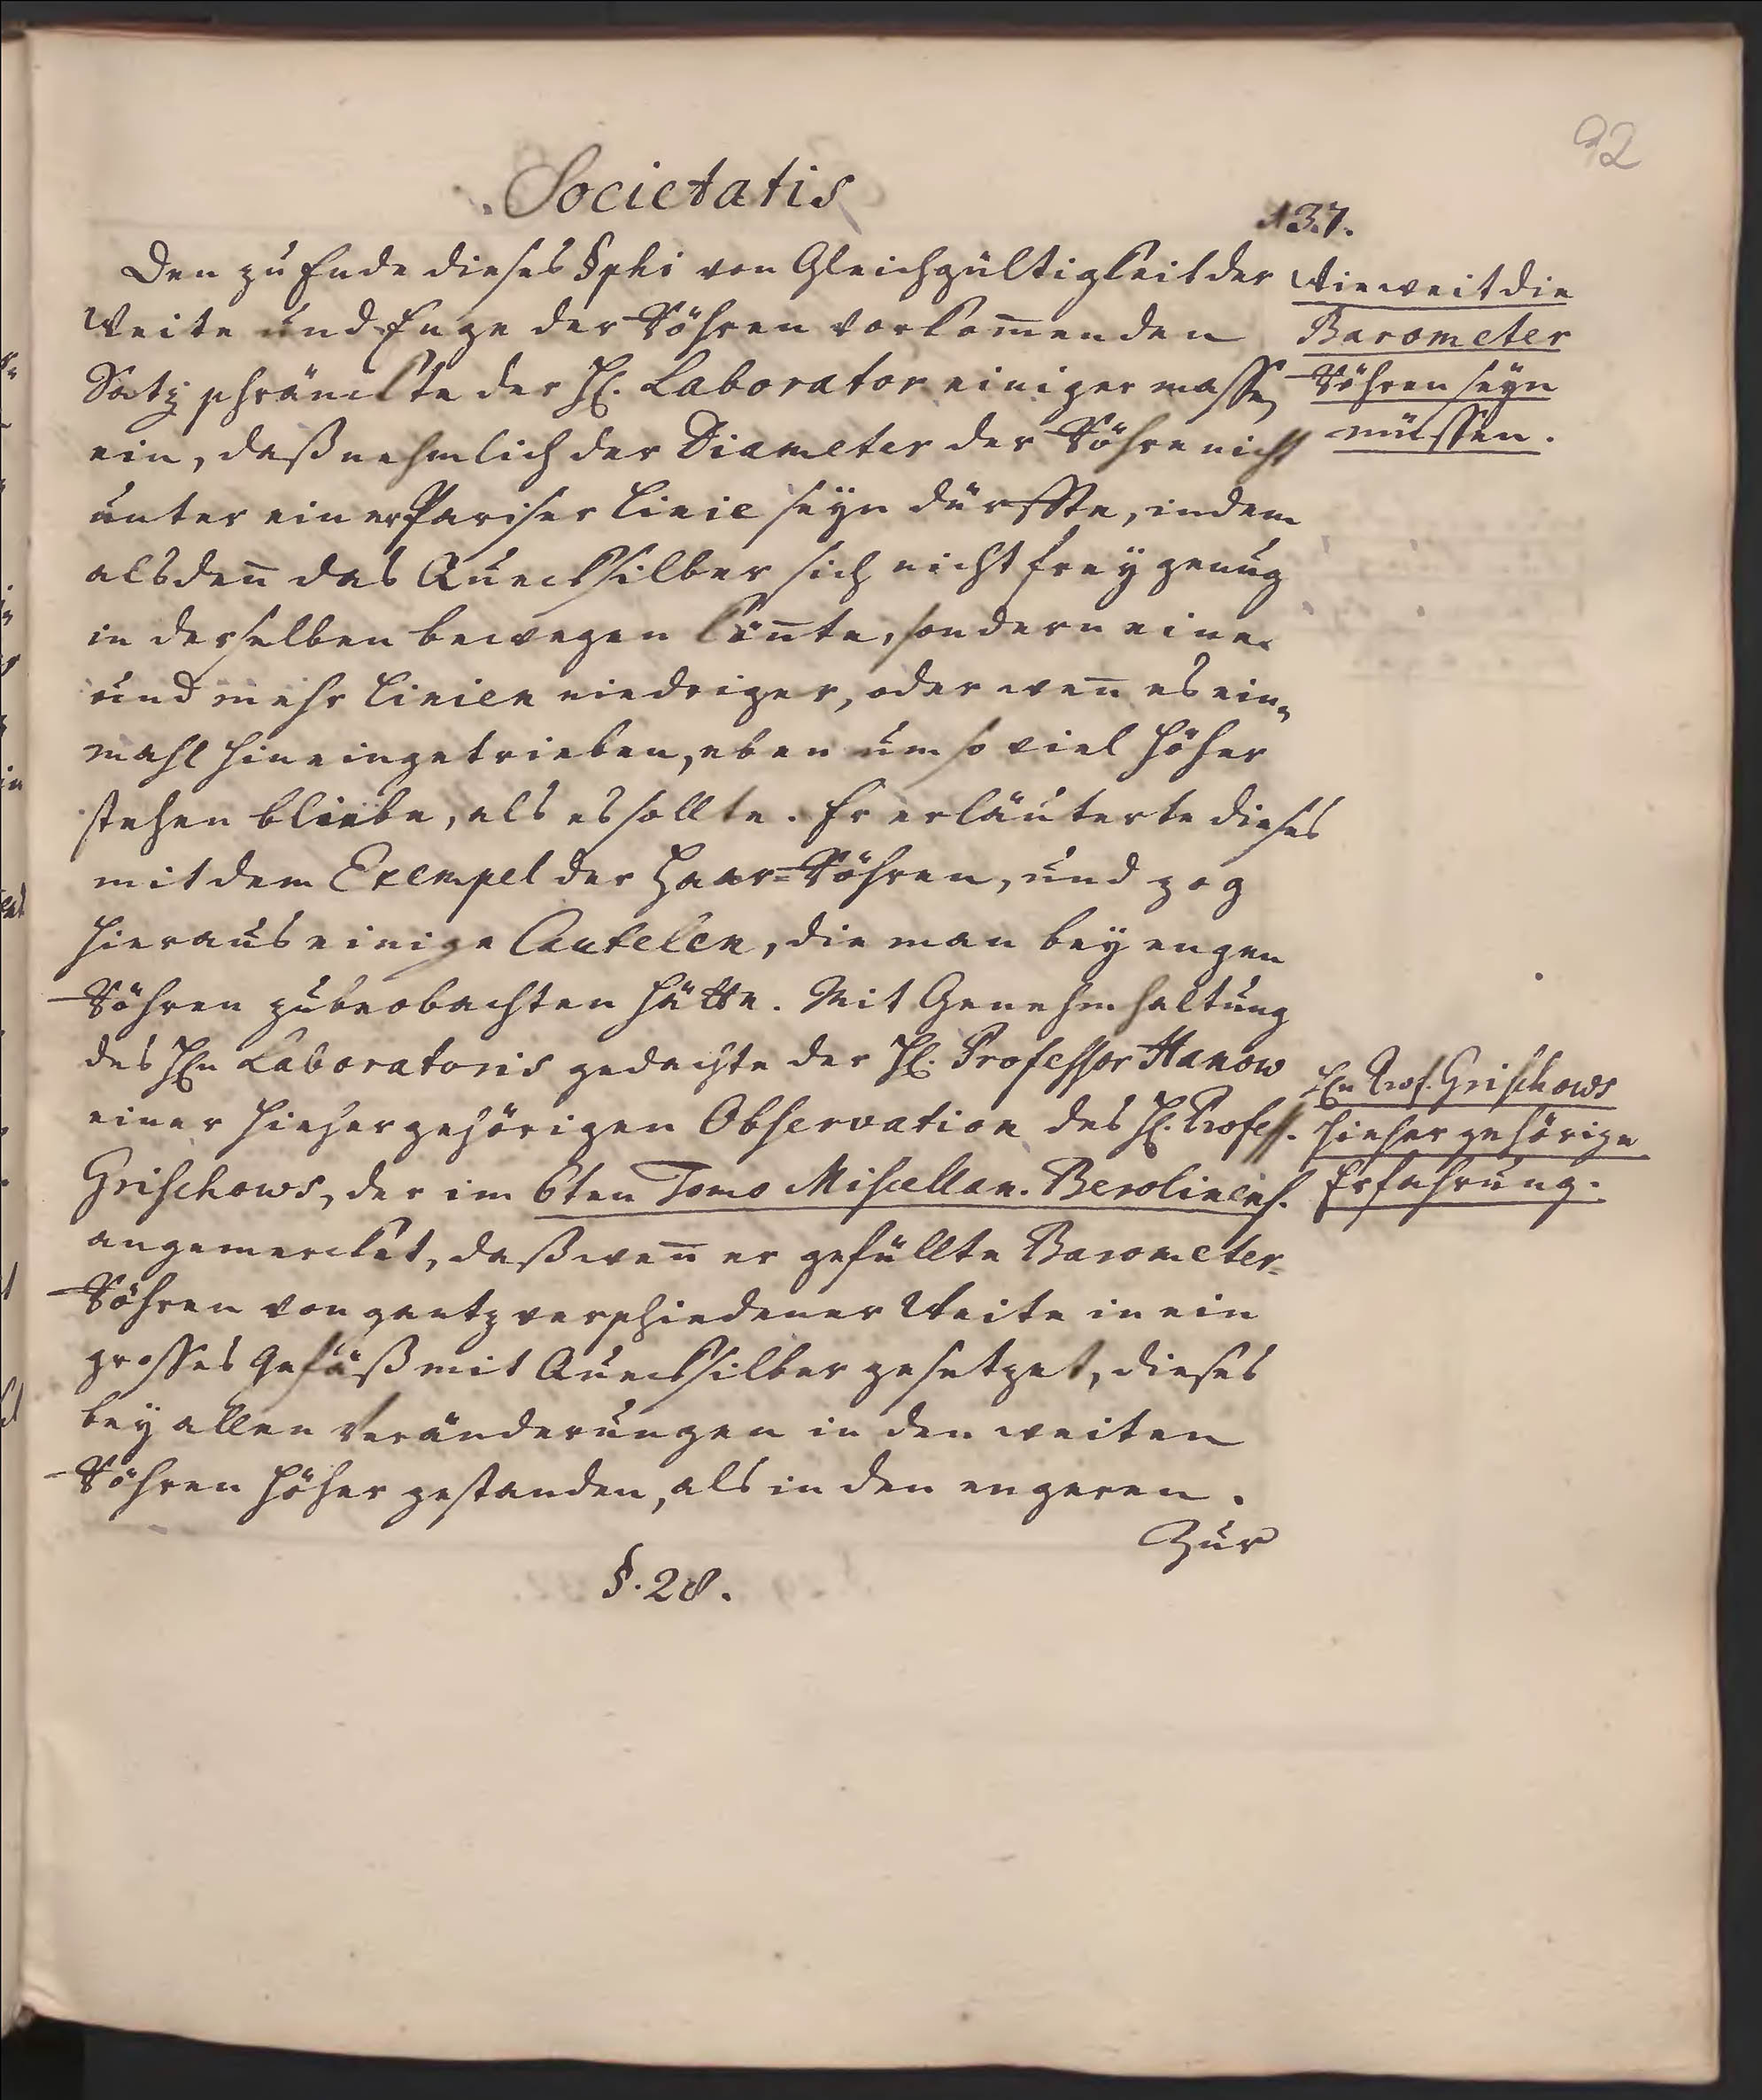 92
Societatis
137.
Den zu Ende dieses §phi von Gleichgültigkeit der
Weite und Enge der Röhren vorkom̅enden
Satz schränckte der H. Laborator einiger massen
ein, daß nehmlich der Diameter der Röhre nicht
unter einer Pariser Linie seyn dürffte, indem
alsden̅ das Quecksilber sich nicht frey genug
in derselben bewegen kön̅te, sondern eine
und mehr Linien niedriger, oder wen̅ es ein„
mahl hineingetrieben, eben um so viel höher
stehen bliebe, als es sollte. Er erläuterte dieses
mit dem Exempel der Haar-Röhren, und zog
hieraus einige Cautelen, die man bey engen
Röhren zu beobachten hätte. Mit Genehmhaltung
des Hn Laboratoris gedachte der H. Professor Hanow
einer hieher gehörigen Observation des H. Profess.
Grischows, der im 6ten Tomo Miscellan. Berolinens.
angemercket, daß wen̅ er gefüllte Barometer-
Röhren von gantz verschiedener Weite in ein
grosses Gefäß mit Quecksilber gesetzet, dieses
bey allen Veränderungen in den weiten
Röhren höher gestanden, als in den engeren.
Zur
§. 28.
Wie weit die
Barometer
Röhren seyn
müssen.
Hn Prof. Grischows
hieher gehörige
Erfahrung.